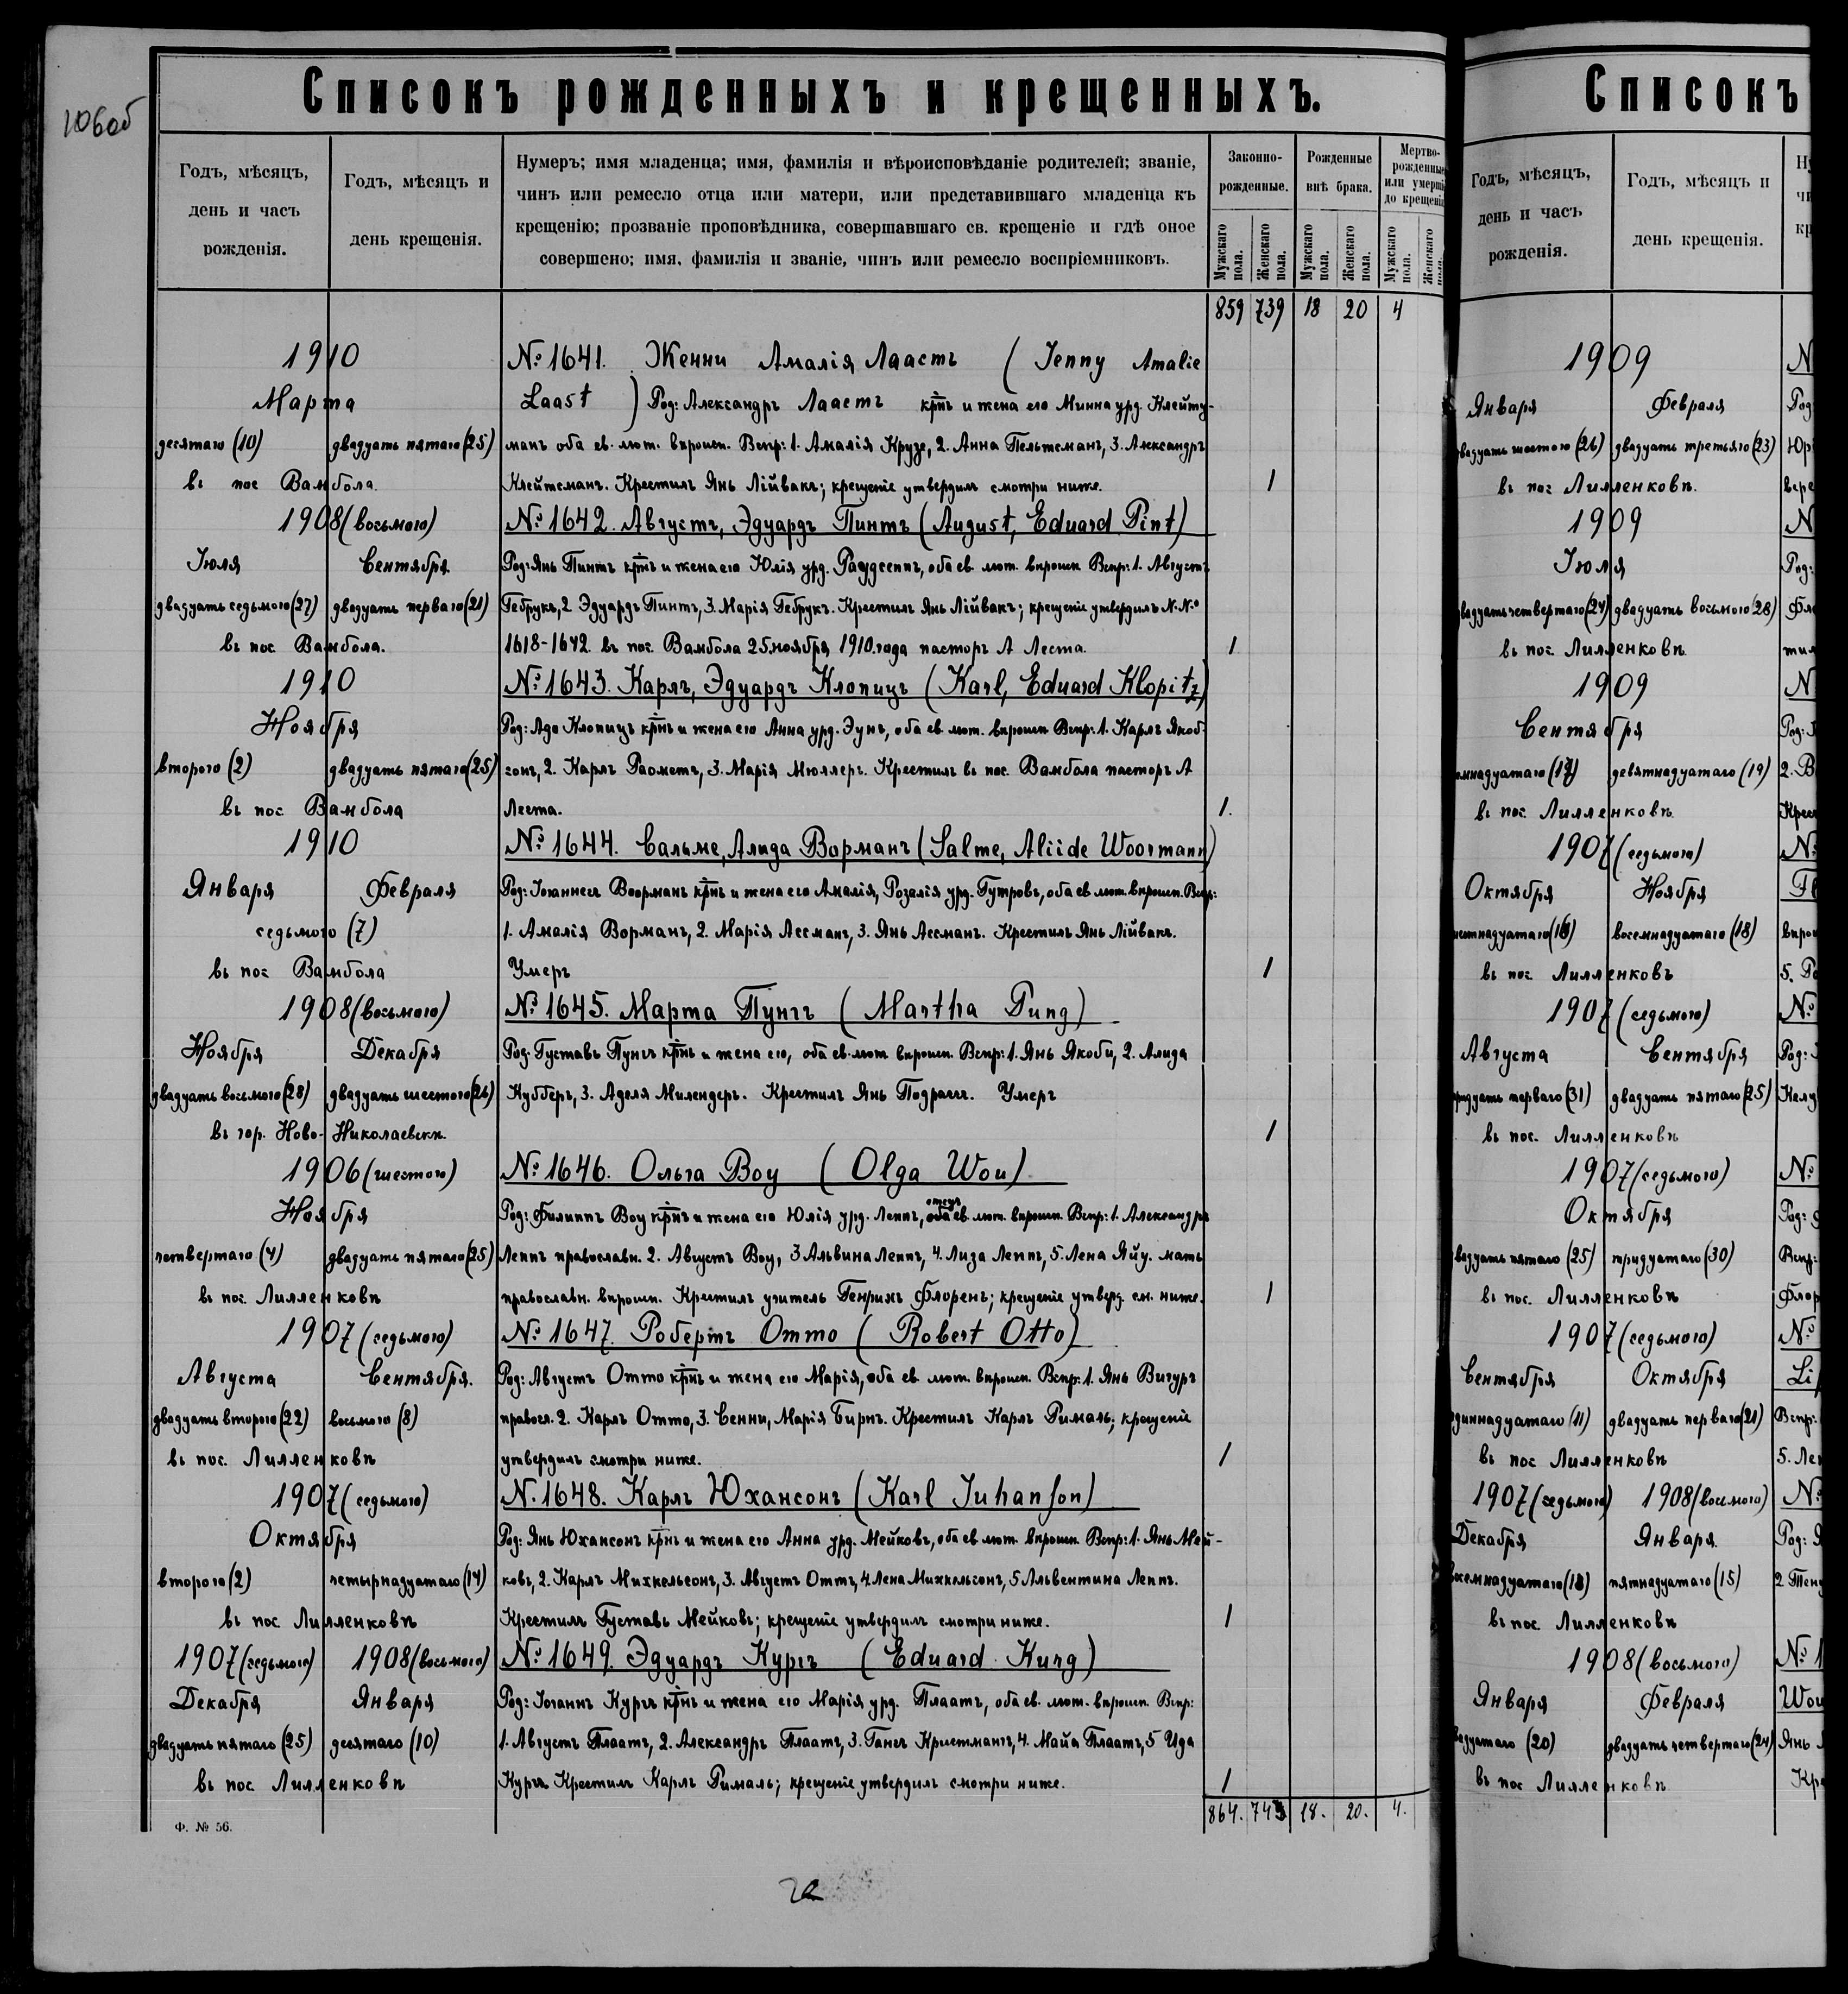 106об
Списокъ рожденныхъ и крещенныхъ.
Годъ, мѣсяцъ, день и часъ рожденія.
Годъ, мѣсяцъ и день крещенія.
Нумеръ; имя младенца; имя, фамилія и вѣроисповѣданіе родителей; званіе,
чинъ или ремесло отца или матери, или представившаго младенца къ
крещенію; прозваніе проповѣдника, совершавшаго св. крещеніе и гдѣ оное
совершено; имя, фамилія и званіе, чинъ или ремесло воспріемниковъ.
Законно-рожденные.
Рожденные внѣ брака.
Мертво-рожденные или умерші до крещені
Мужскаго пола. Женскаго пола. Мужскаго пола. Женскаго пола. Мужскаго пола. Женскаго пола.
859 739 18 20 4
1910 № 1641. Женни Амалія Лаастъ (Jenny Amalie
Марта Laast) Род: Александръ Лаастъ крнъ и жена его Минна урд. Клейтц-
десятаго (10) двадцать пятаго (25) манъ оба ев. лют. вѣроисп. Вспр: 1. Амалія Крузе, 2. Анна Пельтсманъ, 3. Александръ
въ пос Вамбола. Клейтсманъ. Крестилъ Янъ Лійвакъ; крещеніе утвердилъ смотри ниже. 1
1908 (восьмого) № 1642. Августъ, Эдуардъ Пинтъ (August, Eduard Pint)
Іюля Сентября Род: Янъ Пинтъ крнъ и жена его Юлія урд. Раудсеппъ, оба ев. лют. вѣроисп Вспр: 1. Августъ
двадцать седьмого (27) двадцать перваго (21) Гебрукъ, 2 Эдуардъ Пинтъ, 3. Марія Гебрукъ. Крестилъ Янъ Лійвакъ; крещеніе утвердилъ N. №
въ пос Вамбола. 1618-1642. въ пос. Вамбола 25. ноября 1910. года пасторъ А Леста. 1
1910 № 1643. Карлъ, Эдуардъ Клопицъ (Karl, Eduard Klopitz)
Ноября Род: Адо Клопицъ крнъ и жена его Анна урд. Эунъ, оба ев. лют. вѣроисп Вспр: 1. Карлъ Якоб-
второго (2) двадцать пятаго (25) сонъ, 2. Карлъ Раометъ, 3. Марія Мюллеръ. Крестилъ въ пос. Вамбола пасторъ А
въ пос Вамбола Леста. 1.
1910 № 1644. Сальме, Алида Ворманъ (Salme, Aliide Woormann)
Января Февраля Род: Іоаннесъ Воорманъ крнъ и жена его Амалія, Розалія урд. Гутровъ, оба ев лют. вѣроисп. Вспр:
седьмого (7) 1. Амалія Ворманъ, 2. Марія Ассманъ, 3. Янъ Ассманъ. Крестилъ Янъ Лійвакъ.
въ пос Вамбола Умеръ 1
1908 (восьмого) № 1645. Марта Пунгъ (Martha Pung)
Ноября Декабря Род: Густавъ Пунгъ крнъ и жена его, оба ев. лют вѣроисп. Вспр: 1. Янъ Якоби, 2. Алида
двадцать восьмого (28) двадцать шестого (26) Кубберъ, 3. Аделя Милендеръ. Крестилъ Янъ Подрасъ. Умеръ
въ гор. Ново-Николаевскѣ. 1
1906 (шестого) № 1646. Ольга Воу (Olga Wou)
Ноября Род: Филиппъ Воу крнъ и жена его Юлія урд. Леппъ, оба отецъ ев. лют. вѣроисп. Вспр: 1. Александръ
четвертаго (4) двадцать пятаго (25) Леппъ православн. 2. Августъ Воу, 3 Альвина Леппъ, 4. Лиза Леппъ, 5. Лена Яйц. мать
въ пос. Лилленковѣ православн. вѣроисп. Крестилъ учитель Генрихъ Флоренъ; крещеніе утверд. см. ниже. 1
1907 (седьмого) № 1647. Робертъ Отто (Robert Otto)
Августа Сентября. Род: Августъ Отто крнъ и жена его Марія, оба ев. лют. вѣроисп. Вспр: 1. Янъ Вигуръ
двадцать второго (22) восьмого (8) правосл. 2. Карлъ Отто, 3. Сенни, Марія Бирнъ. Крестилъ Карлъ Рималь; крещеніе
въ пос. Лилленковѣ утвердилъ смотри ниже. 1
1907 (седьмого) N. 1648. Карлъ Юхансонъ (Karl Juhanson)
Октября Род: Янъ Юхансонъ крнъ и жена его Анна урд. Мейковъ, оба ев лют. вѣроисп Вспр: 1. Янъ Мей-
второго (2) четырнадцатаго (14) ковъ, 2. Карлъ Михкельсонъ, 3. Августъ Оттъ, 4. Лена Михкельсонъ, 5 Альвентина Леппъ.
въ пос Лилленковѣ Крестилъ Густавъ Мейковъ; крещеніе утвердилъ смотри ниже. 1
1907 (седьмого) 1908 (восьмого) № 1649. Эдуардъ Кургъ (Eduard Kurg)
Декабря Января Род: Іоганнъ Кургъ крнъ и жена его Марія урд. Плаатъ, оба ев. лют. вѣроисп. Вспр:
двадцать пятаго (25) десятаго (10) 1. Августъ Плаатъ, 2. Александръ Плаатъ, 3. Гансъ Кристманъ, 4. Майа Плаатъ, 5 Ида
въ пос Лилленковѣ Кургъ Крестилъ Карлъ Рималь; крещеніе утвердилъ смотри ниже. 1
864. 743 18. 20. 4.
Ф. № 56.
Списокъ
Годъ, мѣсяцъ, день и часъ рожденія.
Годъ, мѣсяцъ и день крещенія.
1909
Января Февраля Род
двадцать шестого (26) двадцать третьяго (23) Юр
въ пос Лилленковѣ.
1909
Іюля Род:
двадцать четвертаго (24) двадцать восьмого (28)
въ пос. Лилленковѣ
1909
Сентября Род:
(17) девятнадцатаго (19) 2. В
въ пос. Лилленковѣ. Крес
1907 (седьмого) №
Октября Ноября
(16) восемнадцатаго (18)
въ пос. Лилленковъ 5.
1907 (седьмого) №
Августа Сентября Род:
тридцать перваго (31) двадцать пятаго (25)
въ пос. Лилленковѣ
1907 (седьмого) №
Октября Род:
двадцать пятаго (25) тридцатаго (30) Вспр:
въ пос. Лилленковѣ Флор
1907 (седьмого) №
Сентября Октября Li
одиннадцатаго (11) двадцать перваго (21) Вспр:
въ пос Лилленковѣ 5. Ле
1907 (седьмого) 1908 (восьмого) №
Декабря Января Род: Я
восемнадцатаго (18) пятнадцатаго (15)
въ пос. Лилленковѣ
1908 (восьмого) № 1
Января Февраля Wou
(20) двадцать четвертаго (24) Янъ
въ пос Лилленковѣ. Кр